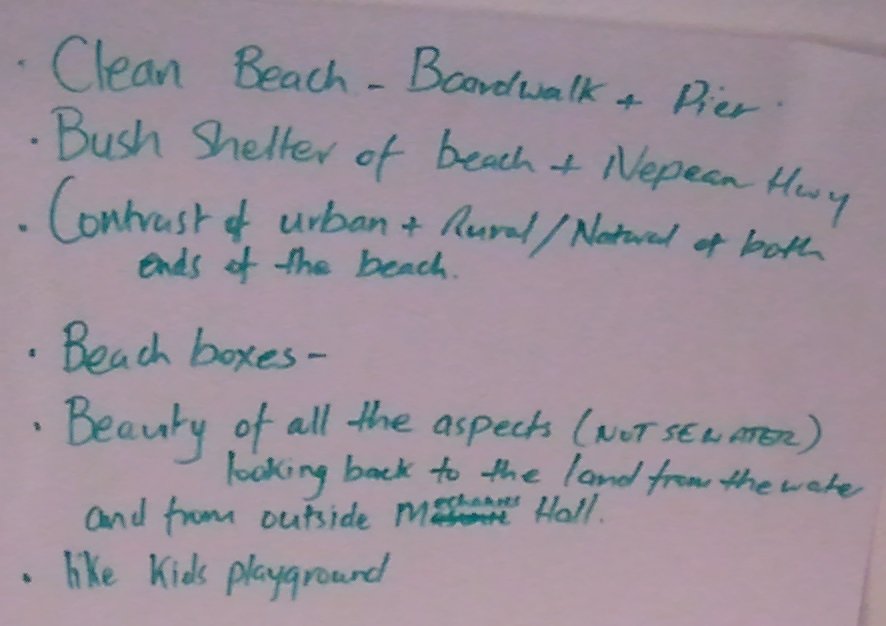 · Clean Beach - Boardwalk + Pier.
· Bush Shelter of beach + Nepean Hwy
· Contrast of urban + Rural/Natural at both
ends of the beach.
· Beach boxes-
· Beauty of all the aspects (NOT SEWATER)
looking back to the land from the water
and from outside Mechanics Hall.
· like Kids playground